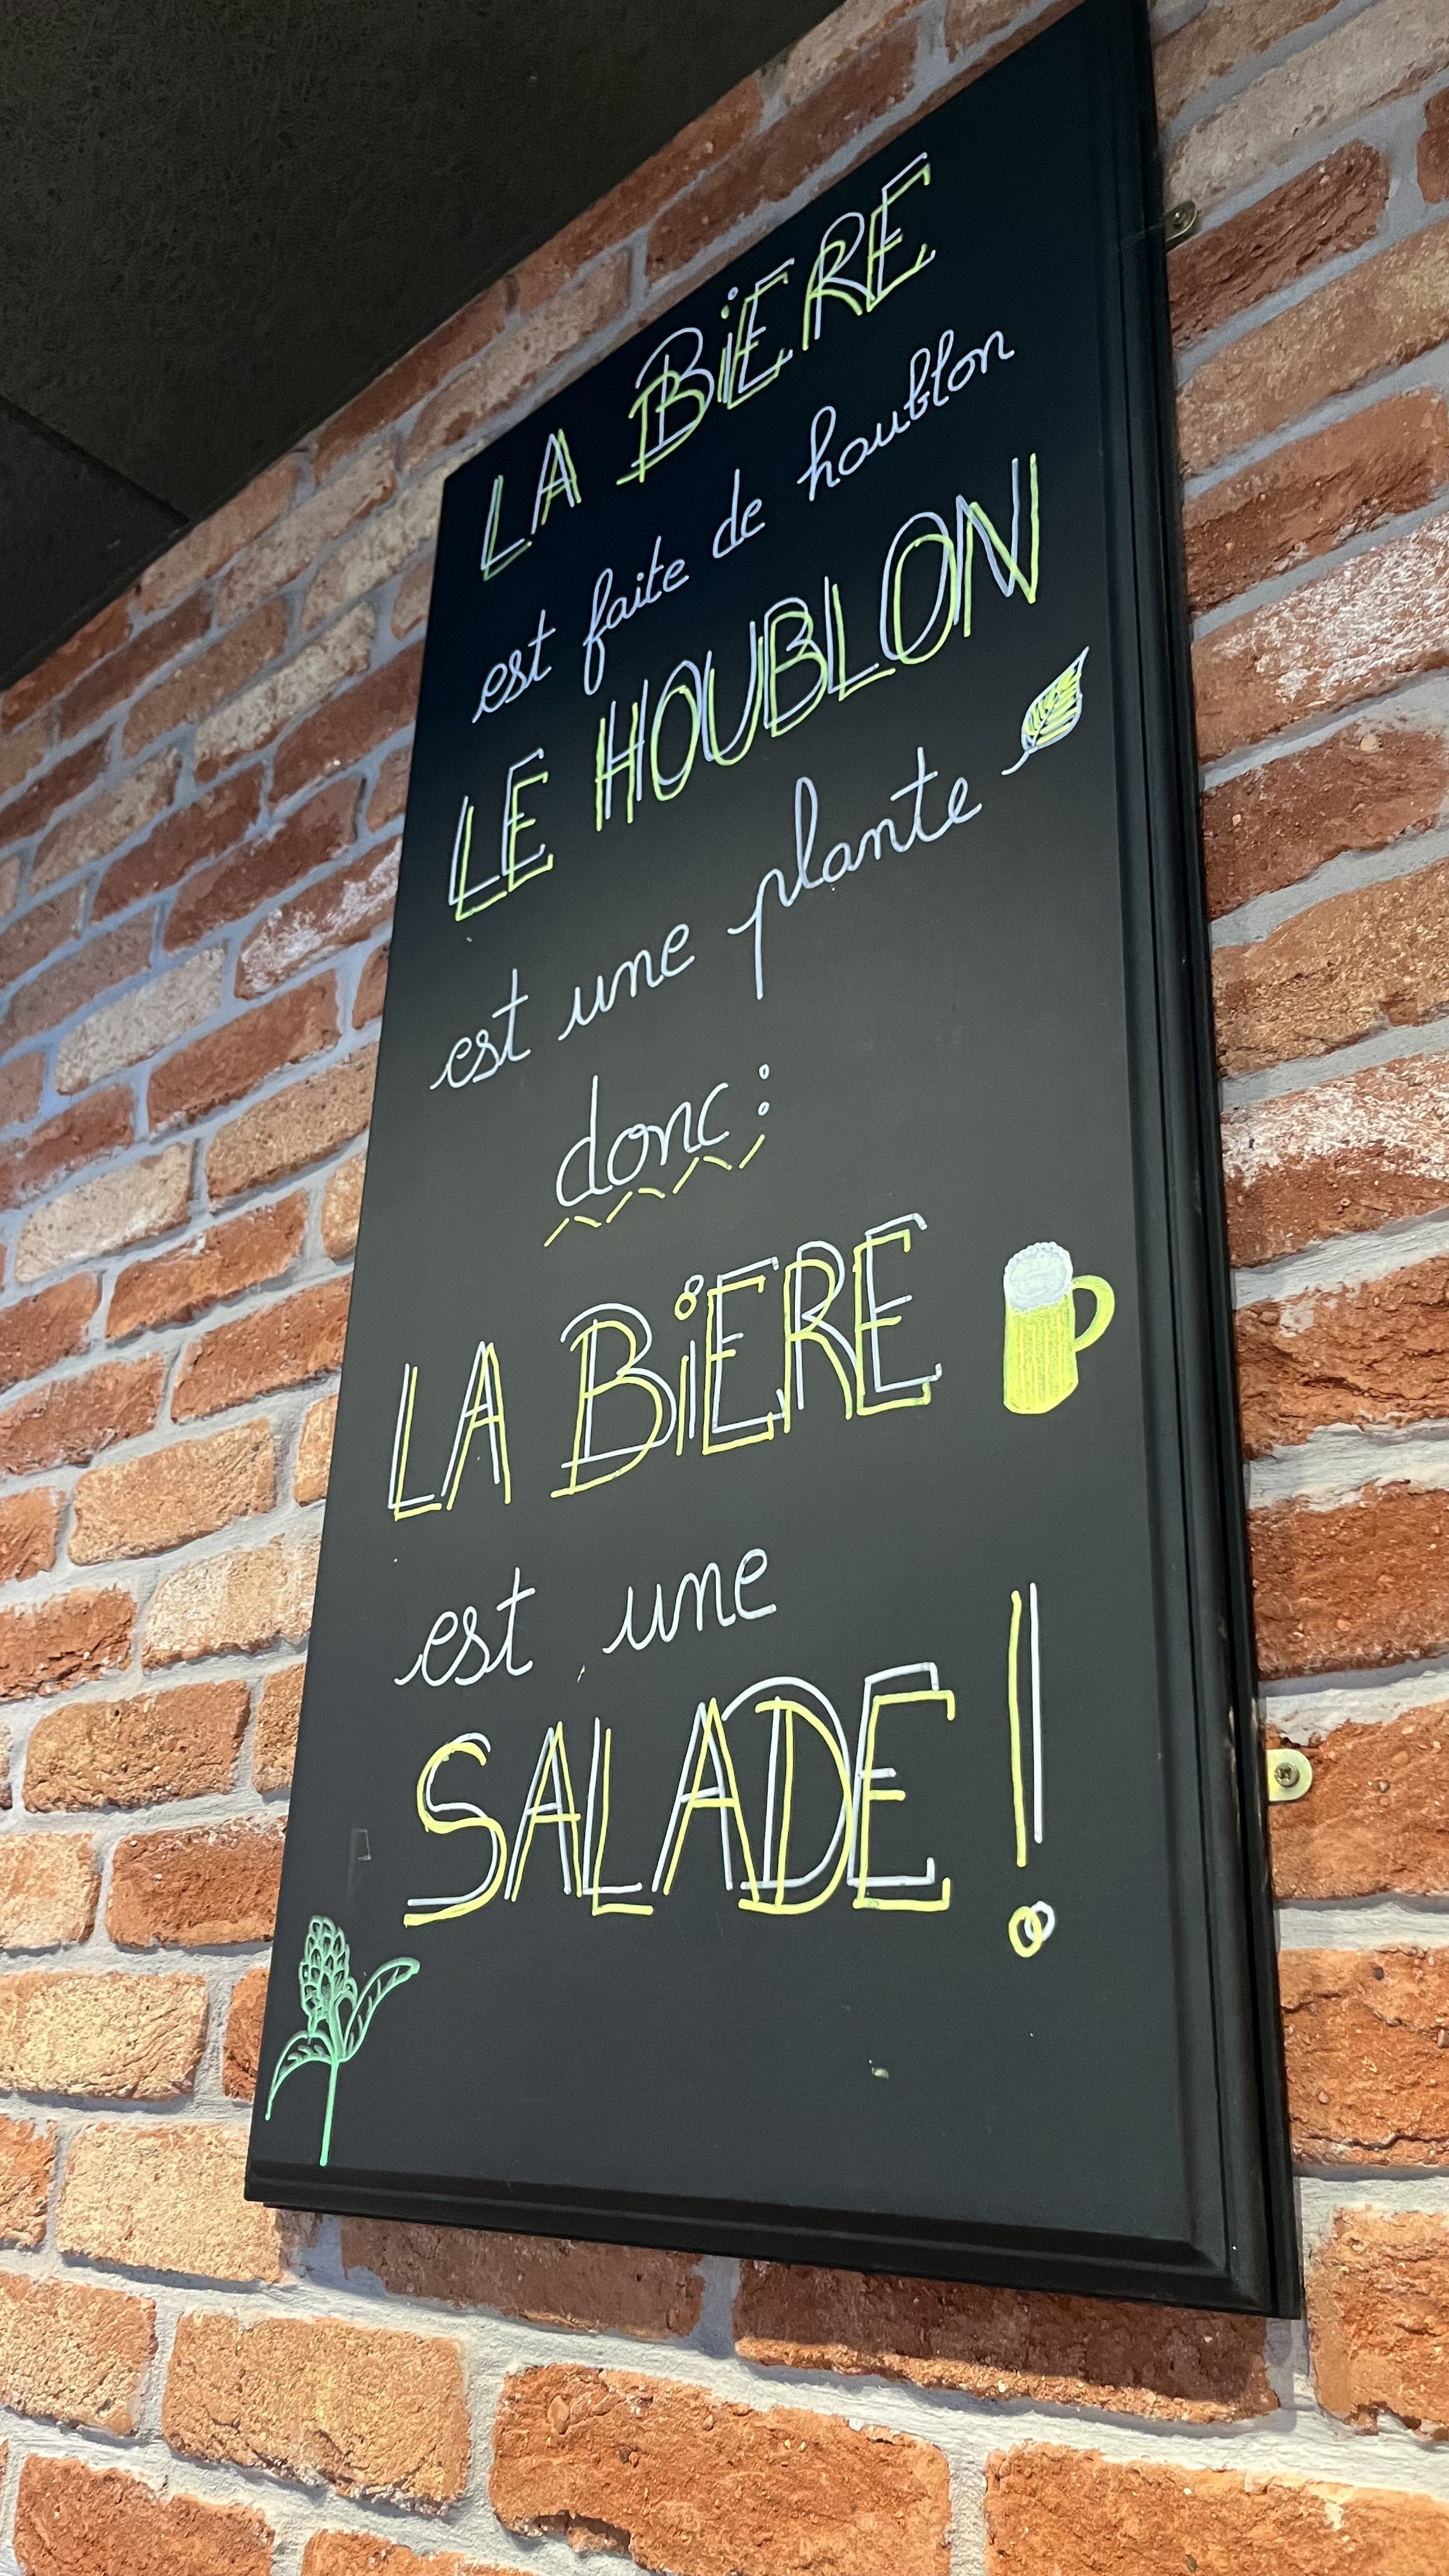 LA BiERE
est faite de houblon
LE HOUBLON
est une plante
donc :
LA BiERE
est une
SALADE !